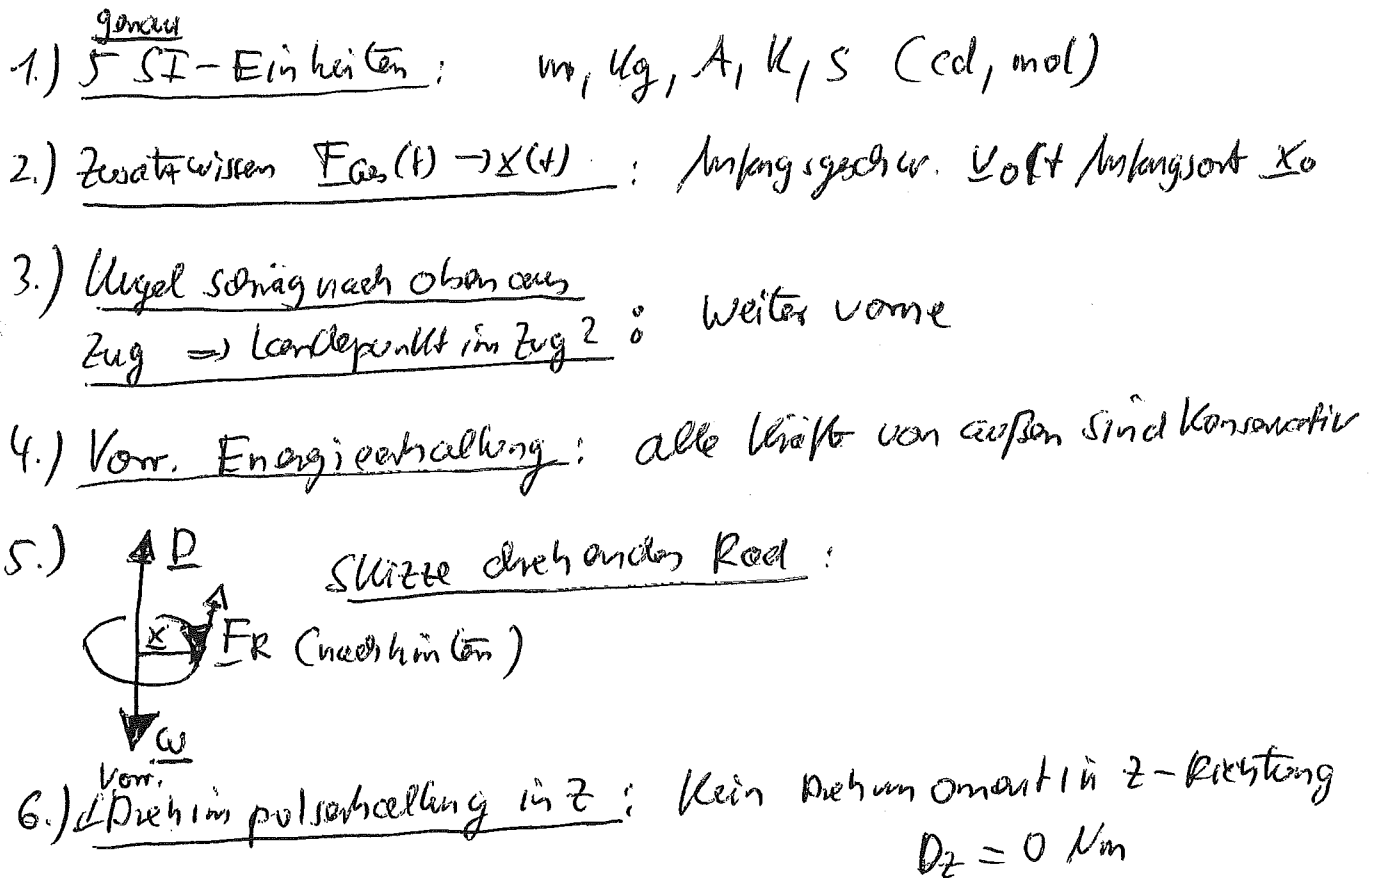 genau
1.) 5 SI-Einheiten: m, kg, A, K, s (cd, mol)
2.) Zusatzwissen F_Ges(t) → x(t) : Anfangsgeschw. v_0 & Anfangsort x_0
3.) Kugel schräg nach oben aus
Zug ⇒ Landepunkt im Zug? : weiter vorne
4.) Vorr. Energieerhaltung: alle Kräfte von außen sind konservativ
5.) D Skizze drehendes Rad:
x F_R (nach hinten)
ω
Vorr.
6.) Drehimpulserhaltung in z: Kein Drehmoment in z-Richtung
D_z = 0 Nm